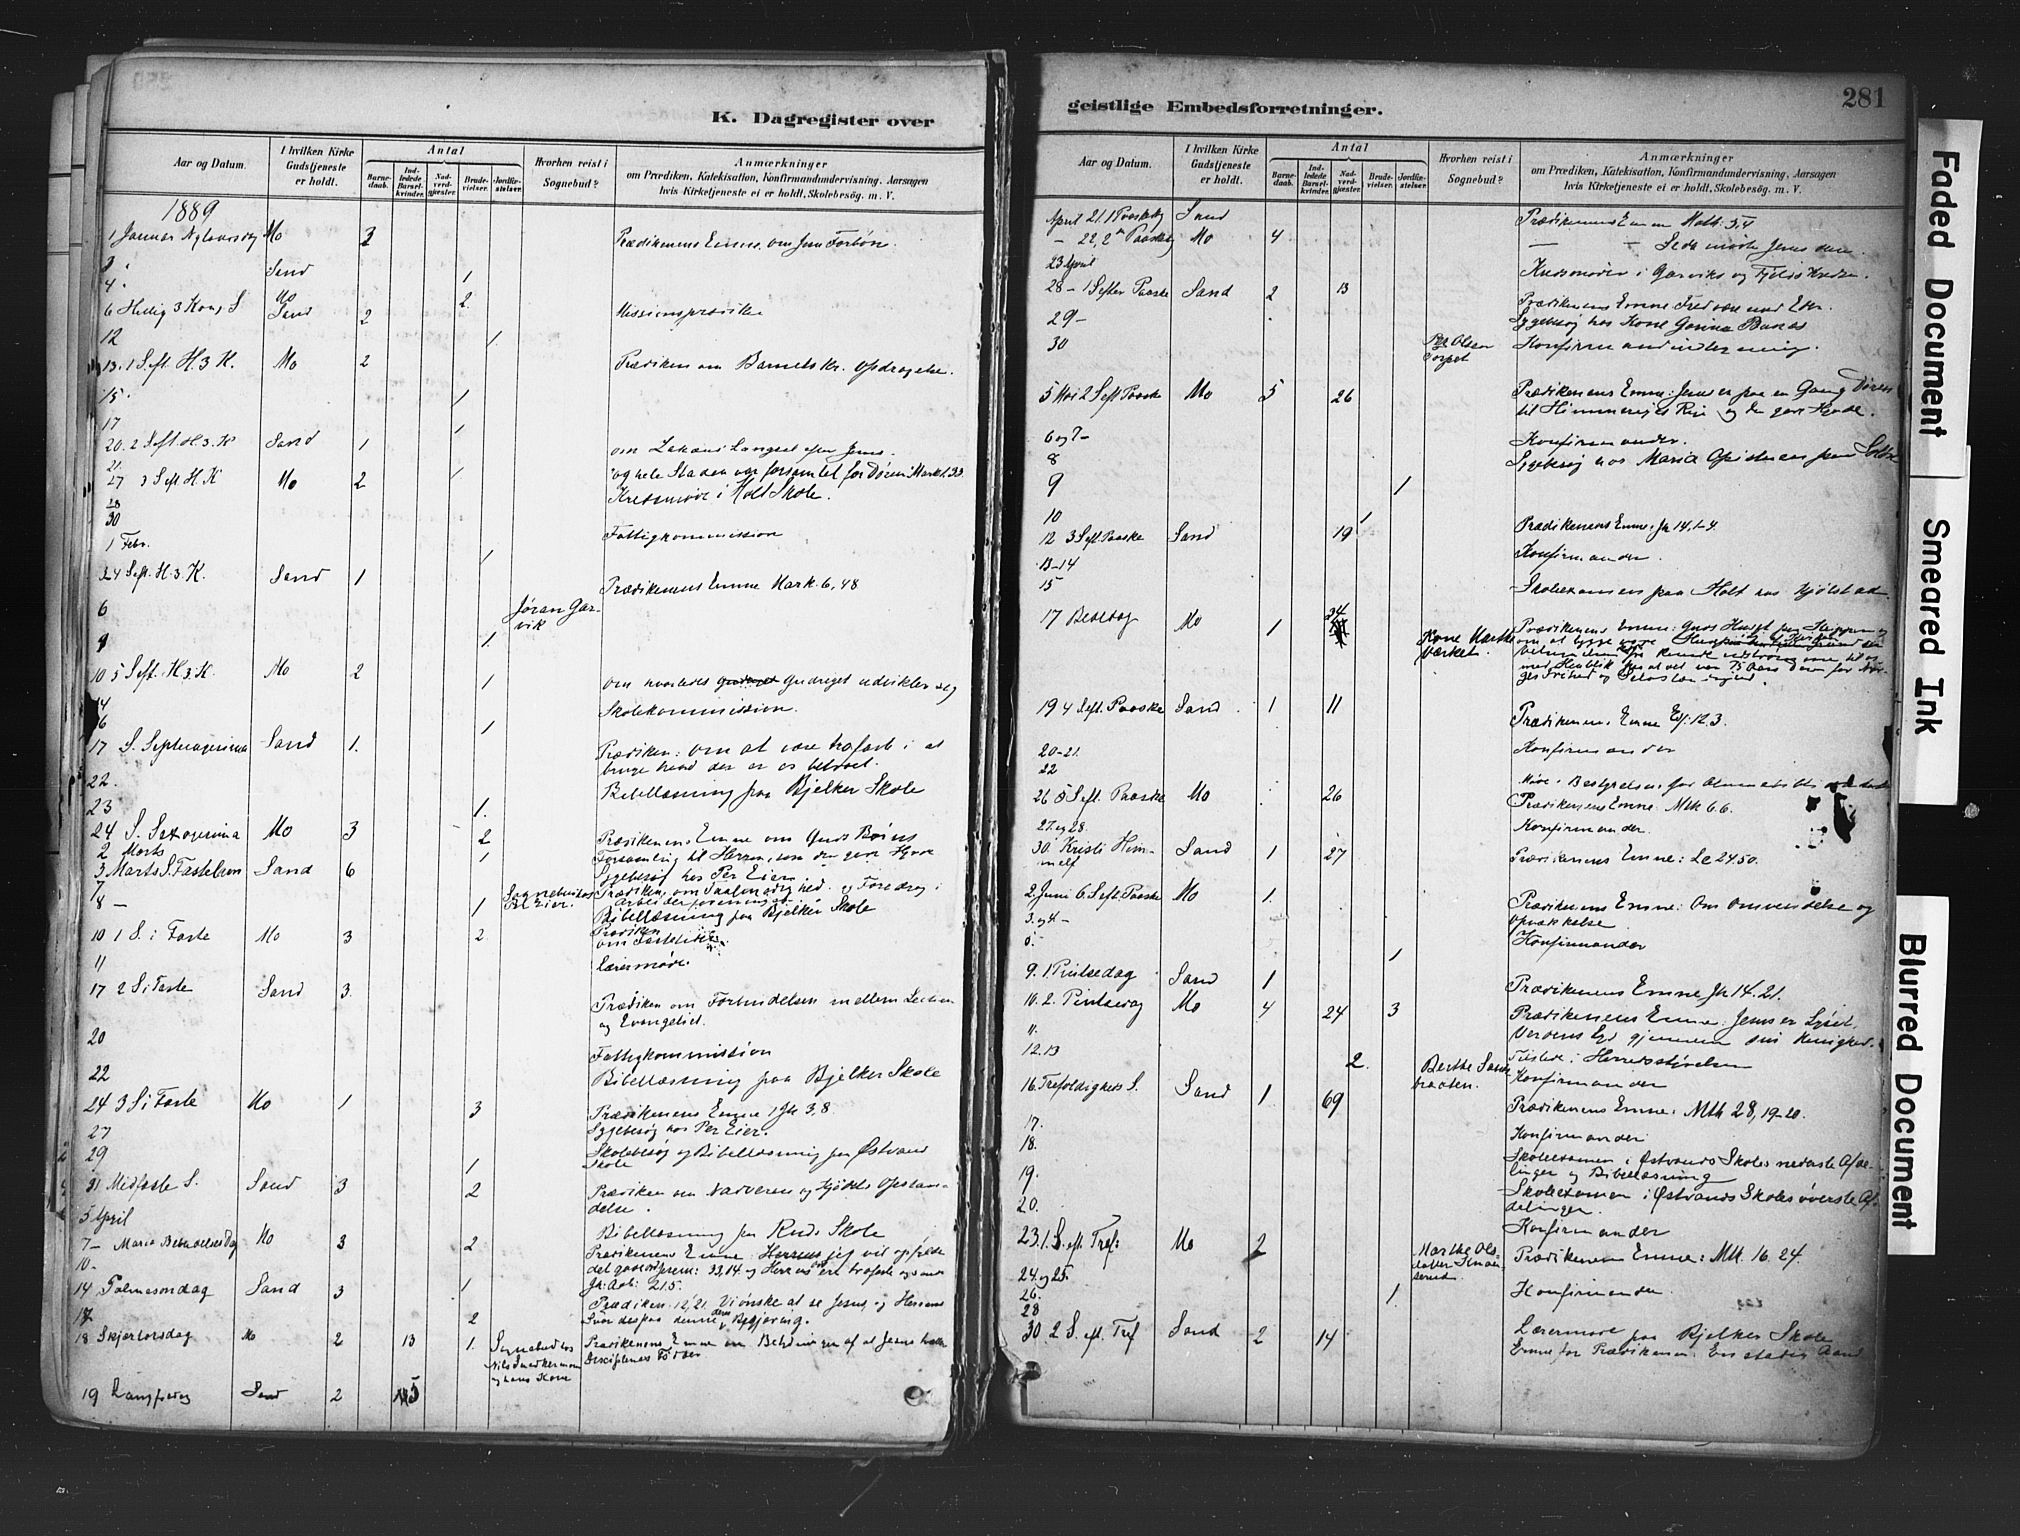 K. Dagregister over
Aar og Datum.
I hvilken Kirke Gudstjeneste er holdt.
Antal
Barnedaab.
Indledede Barselkvinder.
Nadverdgjæster.
Brudevielser.
Jordfæstelser.
Hvorhen reist i Sognebud?
Anmærkninger
om Prædiken, Katekisation, Konfirmandundervisning, Aarsagen
hvis Kirketjeneste ei er holdt, Skolebesøg, m. V.
1889
1 Januar Nytaarsdag Mo 3 Prædikenens Emne, om Jesu
3 Sand
4. 1
6 Hellig 3 Kong. S Mo Sand 2 2 Missionsprædiken
12 1
13. 1 S eft. H. 3. K. Mo 2 Prædiken om Barnets kr. Opdragelse.
15. 1
17 1
20. 2 S eft. H. 3. K Sand 1 om Zakæus Længsel efter Jesus.
21.
27 3 S eft H. K Mo 2 1 og hele Staden var forsamlet for Døren Mark 1.33
28 Kredsmøde i Holt Skole.
30
1 Febr. Fattigkommission
1
3 4 S eft. H. 3. K. Sand 1 Prædikenens Emne Mark. 6, 48
6 Jøran Garvik
8 1.
10 5 S eft. H. 3. K. Mo 2 1 om hvorledes Gudriget udvikler sig
14 Skolekommission.
16 1
17 S. Septuagesima Sand 1. Prædiken: om at være trofast i at
bruge hvad der er os betroet.
22. Bibellæsning paa Bjelker Skole
23 1.
24 S. Sexagesima Mo 3 2 Prædikenens Emne om Guds Børns
2 Marts 1 Forsamling til Herren, som den gode Hyrde
3 Marts S. Fastelavn Sand 6 Sygebesøg hos Per Eier
7 Sognebud hos Per Eier. Prædiken om Taalmodighed. og Foredrag i
Arbeiderforeningen
8 — 1 Bibellæsning paa Bjelker Skole
10 1 S. i Faste Mo 3 2 Prædiken
11 Lærermøde.
17 2 S i Faste Sand 3. Prædiken om Forbindelsen mellem Lectien
og Evangeliet.
20 Fattigkommission
22 Bibellæsning paa Bjelker Skole
24 3 S i Faste Mo 1 3 Prædikenens Emne 1 Jh 3.8.
27 Sygebesøg hos Per Eier.
29 1 Skolebesøg og Bibellæsning paa Østvand
Skole
31 Midfaste S. Sand 3 2 Prædiken om Nadveren og Kjødets Opstandelse.
5 April Bibellæsning paa Ruds Skole
7 — Maria Bebudelses Dag Mo 3 2 Prædikenens Emne: jeg vil opfylde
10 — det gode Ord Jerem: 33,14. og Herrens
14 Palmesøndag Sand 3 1
17. 2 Prædiken: 12,21. Vi ønske at se Jesus, og Herrens
Svar denne deres Begjæring.
18 Skjærtorsdag Mo 2 13 1. Sognebud hos Nils Snedkermoen og hans Kone Prædikenens Emne om Betydningen af at Jesus
Disciplenes Fødder
19 Langfredag Sand 2 5
geistlige Embedsforretninger.
281
Aar og Datum.
I hvilken Kirke Gudstjeneste er holdt.
Antal
Barnedaab.
Indledede Barselkvinder.
Nadverdgjæster.
Brudevielser.
Jordfæstelser.
Hvorhen reist i Sognebud?
Anmærkninger
om Prædiken, Katekisation, Konfirmandundervisning, Aarsagen
hvis Kirketjeneste ei er holdt, Skolebesøg, m. V.
April 21. 1 Paaskedag Sand Prædikenens Emne
— 22, 2den Paaskedag Mo 4 — — Se da mødte Jesus dem.
23 April Kredsmøder i Garviks og Fjelds Kredse.
28 — 1 S efter Paaske Sand 2 13 Prædikenens Emne Fred være med Eder.
29 — Sygebesøg hos Kone
30 Per Olsen Torpet Konfirmandundervisning.
5 Mai 2 S eft Paaske Mo 5 26 Prædikenens Emne: Jesus er paa en Gang Døren
til Himmeriges Rige og den gode Hyrde.
6 og 7 — Konfirmander.
8 Sygebesøg hos Maria
9 1
10 1
12 3 S eft Paaske Sand 19 Prædikenens Emne: Jh 14, 1-4.
13-14 Konfirmander.
15 Skoleexamen paa Holt hos Kjølstad
17 Bededag Mo 1 34 Kone Marthe Værket. Prædikenens Emne: Guds Huset paa Klippen
19 4 S eft. Paaske Sand 1 11 Prædikenens Emne Ef: 12.3.
20-21. Konfirmander
22 Møde i Bestyrelsen for
26 5 S eft. Paaske Mo 26 Prædikenens Emne: Mth 6.6.
27. og 28. Konfirmander.
30. Kristi Himmelf Sand 1 27 Prædikenens Emne: Lc 24.50.
2. Juni 6. S eft. Paaske Mo 1. Prædikenens Emne: Om Omvendelse og
Opvækkelse.
3. og 4 — Konfirmander
1
9. 1. Pintsedag Sand 1 Prædikenens Emne Jh 14. 21.
10. 2. Pintsedag Mo 4 24 3 Prædikenens Emne: Jesus er Lyset.
11. Verdens Lys gjennem sin Menighed.
12. 13 2. Berthe Sandbraaten. Tilstede i Herredsstyrelsen
Konfirmander
16. Trefoldigheds S. Sand 1 69 Prædikenens Emne: Mth 28, 19-20.
17. Konfirmander
18. Skoleexamen i Østvands Skoles nederste Afdelinger og Bibellæsning
19. Skoleexamen i Østvands Skoles øverste Afdelinger.
20. Konfirmander
23. 1. S. eft. Tref: Mo 2 Marthe Olsdatter Prædikenens Emne: Mth 16. 24.
24. og 25.
26. 1. Konfirmander.
28 Lærermøde paa Bjelker Skole
30. 2 S. eft. Tref Sand 2 14 Emne for Prædikenen: En stadig Aand
Faded Document
Smeared Ink
Blurred Document